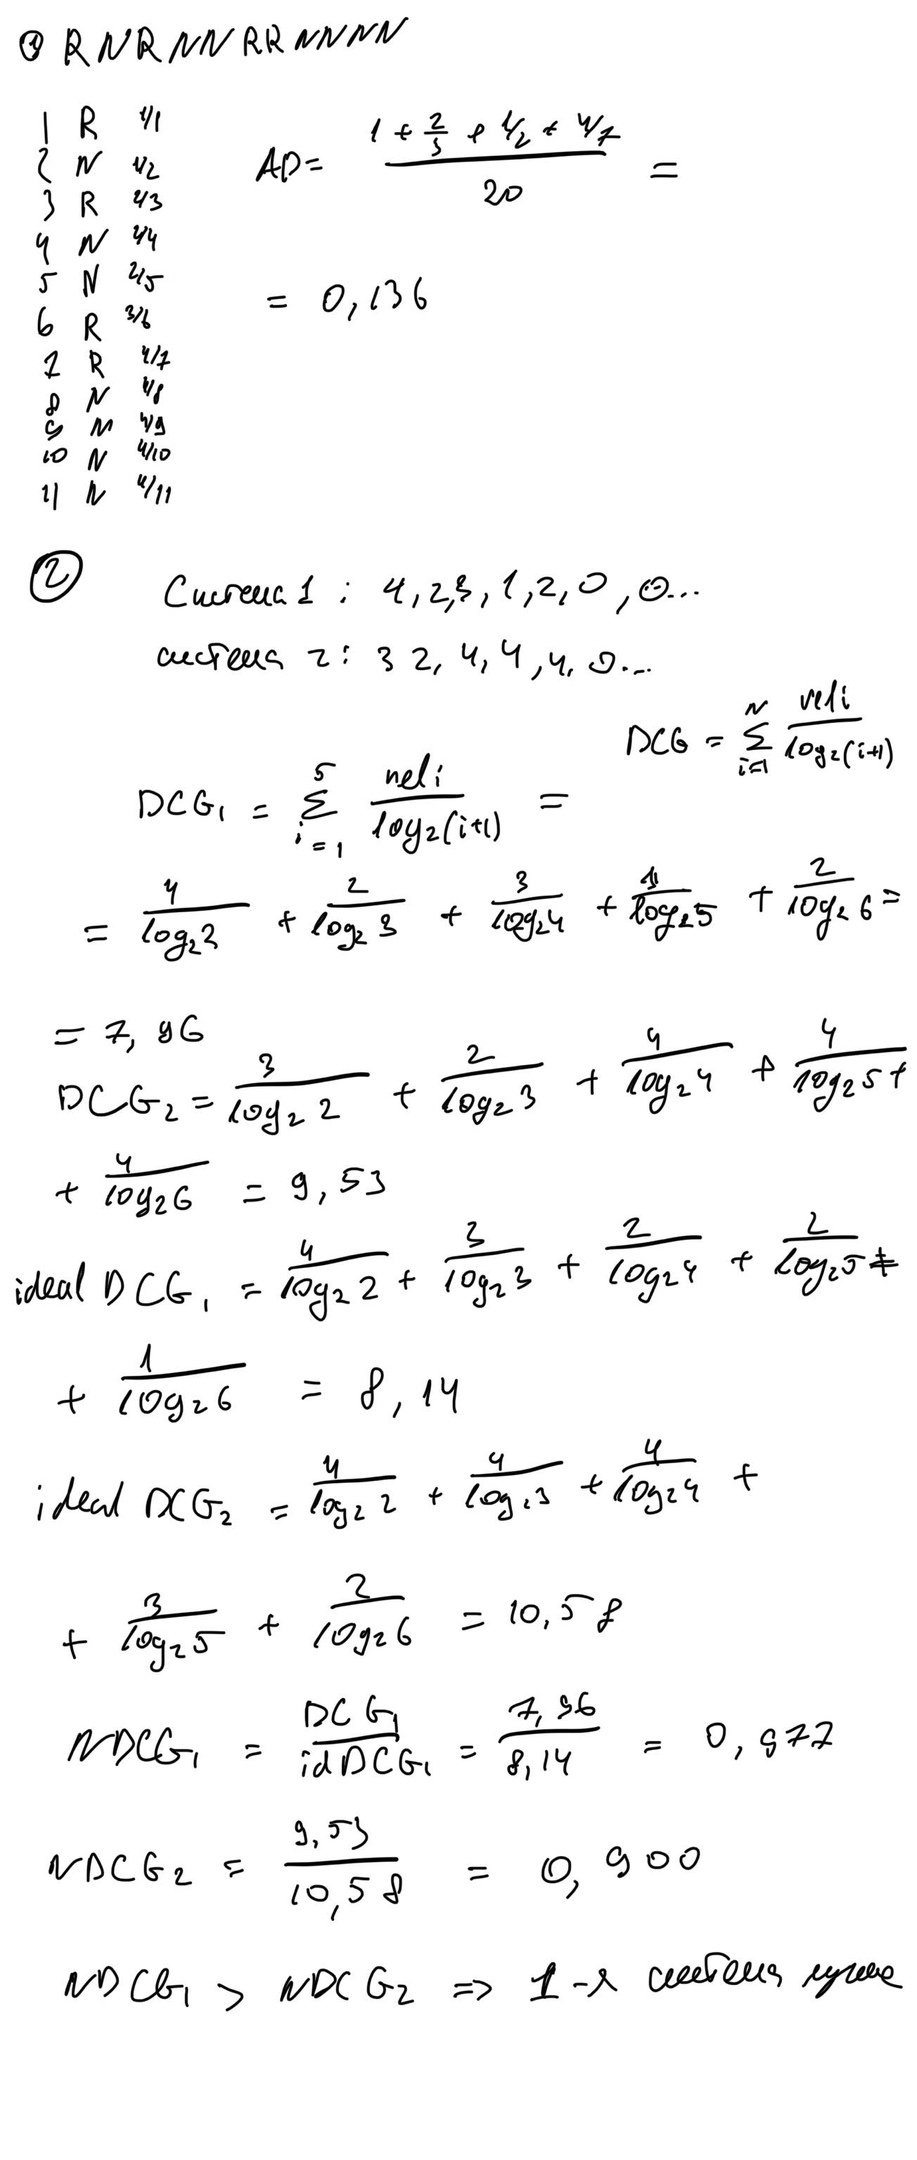 ① R N R N N R R N N N N
1 R 1/1
2 N 1/2
3 R 2/3
4 N 2/4
5 N 2/5
6 R 3/6
7 R 4/7
8 N 4/8
9 N 4/9
10 N 4/10
11 N 4/11
AP = (1 + 2/3 + 1/2 + 4/7) / 20 =
= 0,136
② Система 1 : 4, 2, 3, 1, 2, 0, 0...
система 2 : 3 2, 4, 4, 4, 0...
DCG = Σ_{i=1}^{N} reli / log₂(i+1)
DCG₁ = Σ_{i=1}^{5} reli / log₂(i+1) =
= 4/log₂2 + 2/log₂3 + 3/log₂4 + 1/log₂5 + 2/log₂6 =
= 7,96
DCG₂ = 3/log₂2 + 2/log₂3 + 4/log₂4 + 4/log₂5 +
+ 4/log₂6 = 9,53
ideal DCG₁ = 4/log₂2 + 3/log₂3 + 2/log₂4 + 2/log₂5 +
+ 1/log₂6 = 8,14
ideal DCG₂ = 4/log₂2 + 4/log₂3 + 4/log₂4 +
+ 3/log₂5 + 2/log₂6 = 10,58
NDCG₁ = DCG₁/idDCG₁ = 7,96/8,14 = 0,977
NDCG₂ = 9,53/10,58 = 0,900
NDCG₁ > NDCG₂ => 1-я система лучше